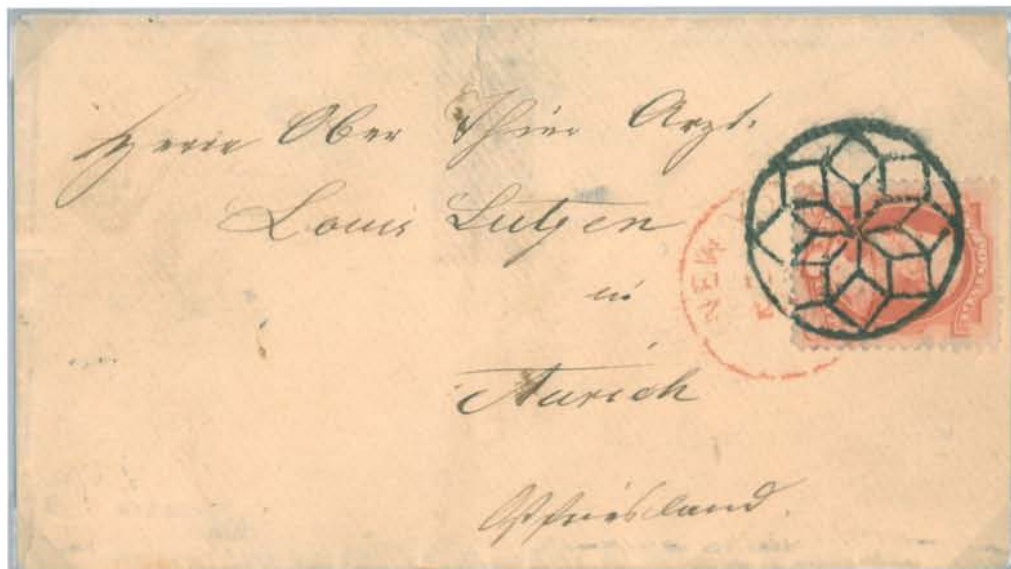 Herrn Ober Thier Arzt.
Louis Lutzen
in
Aurich
Ostfriesland.
NEW